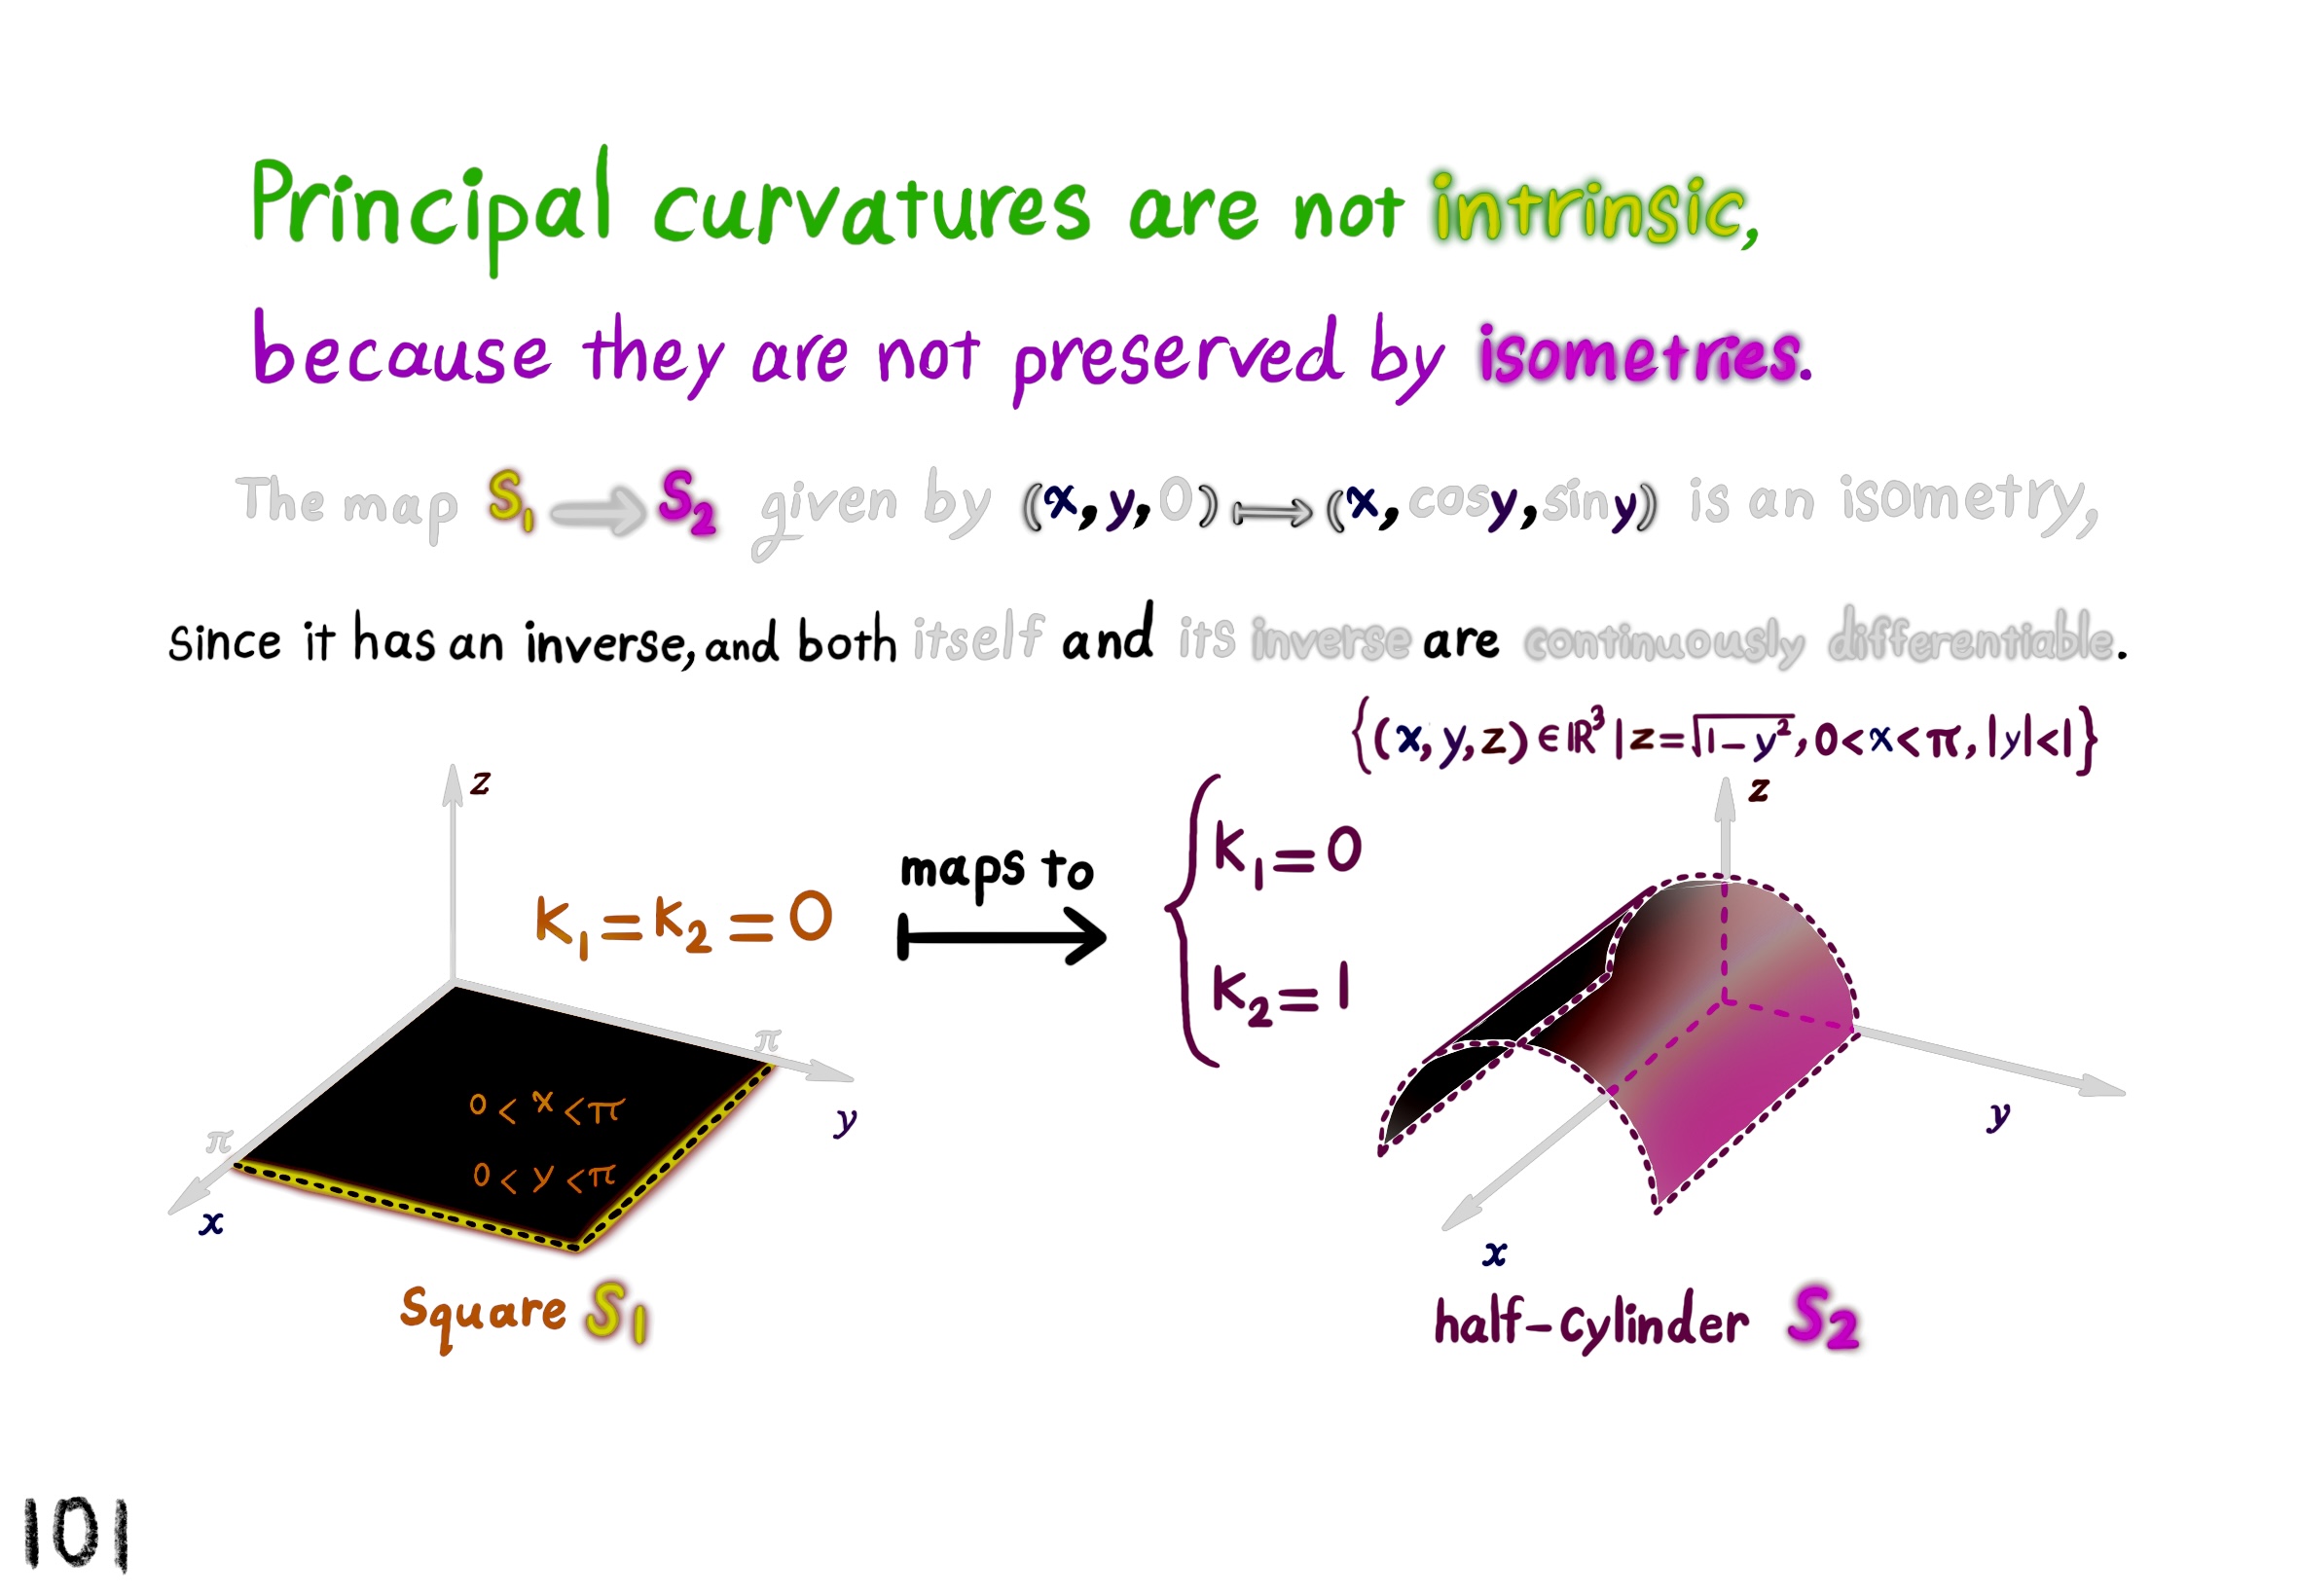 Principal curvatures are not intrinsic,
because they are not preserved by isometries.
The map S₁ ⟶ S₂ given by (x, y, 0) ⟼ (x, cosy, siny) is an isometry,
since it has an inverse, and both itself and its inverse are continuously differentiable.
{(x, y, z) ∈ ℝ³ | z = √(1-y²), 0<x<π, |y|<1}
z
z
K₁ = K₂ = 0
maps to
K₁ = 0
K₂ = 1
π
0 < x < π
0 < y < π
π
x
y
y
x
Square S₁
half-cylinder S₂
101